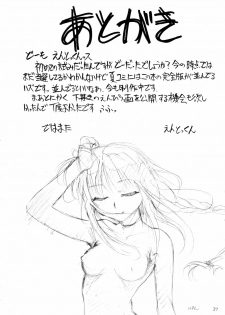 あとがき
どーも えんとっくっス
初めての試みだったんですけど どーだったでしょうか？今の時点では
まだ当選してるかわかんないけど夏コミにはこの本の完全版が並んでる
ハズです。並んでるといいなぁ、今も制作中です。
まぁとにかく、下描きのえんぴつ画を公開する機会も欲し
かったんで丁度よかったです ふふ。
ではまた
えんとっく
29